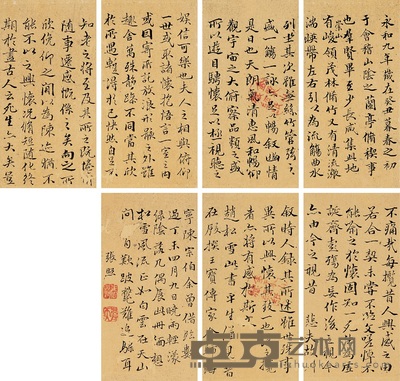 永和九年歲在癸丑暮春之初
于會稽山陰之蘭亭稧事
也群賢畢至少長咸集此地
峻領茂林脩竹又有清流激
湍暎帶左右引以為流觴曲水
列坐其次雖無絲竹管弦之
盛一觴一詠亦足以暢叙幽情
是日也天朗氣清惠風和暢仰
觀宇宙之大俯察品類之盛
所以遊目騁懷足以極視聽之
娛信可樂也夫人之相與俯仰
一世或取諸懷抱悟言一室之內
或因寄所託放浪形骸之外雖
趣舍萬殊靜躁不同當其欣
於所遇暫得於己快然自足不
知老之將至及其所之既惓情
隨事遷感慨係之矣向之所
欣俛仰之間以為陳迹猶不
能不以之興懷況脩短隨化終
期於盡古人云死生亦大矣豈
不痛哉每攬昔人興感之由
若合一契未嘗不臨文嗟悼不
能喻之於懷固知一死生為虛
誕齊彭殤為妄作後之視今
亦由今之視昔 悲夫故列
叙時人錄其所述雖世殊事
異所以興懷其致一也後之攬
者亦將有感於斯文
趙松雪此書平生所見者
寧陳宗伯余曾借臨數
過丁未四月九日曉雨輕濛
綠陰滿几偶展此冊
松雪風流正如白雲在天山
張照
艺术网